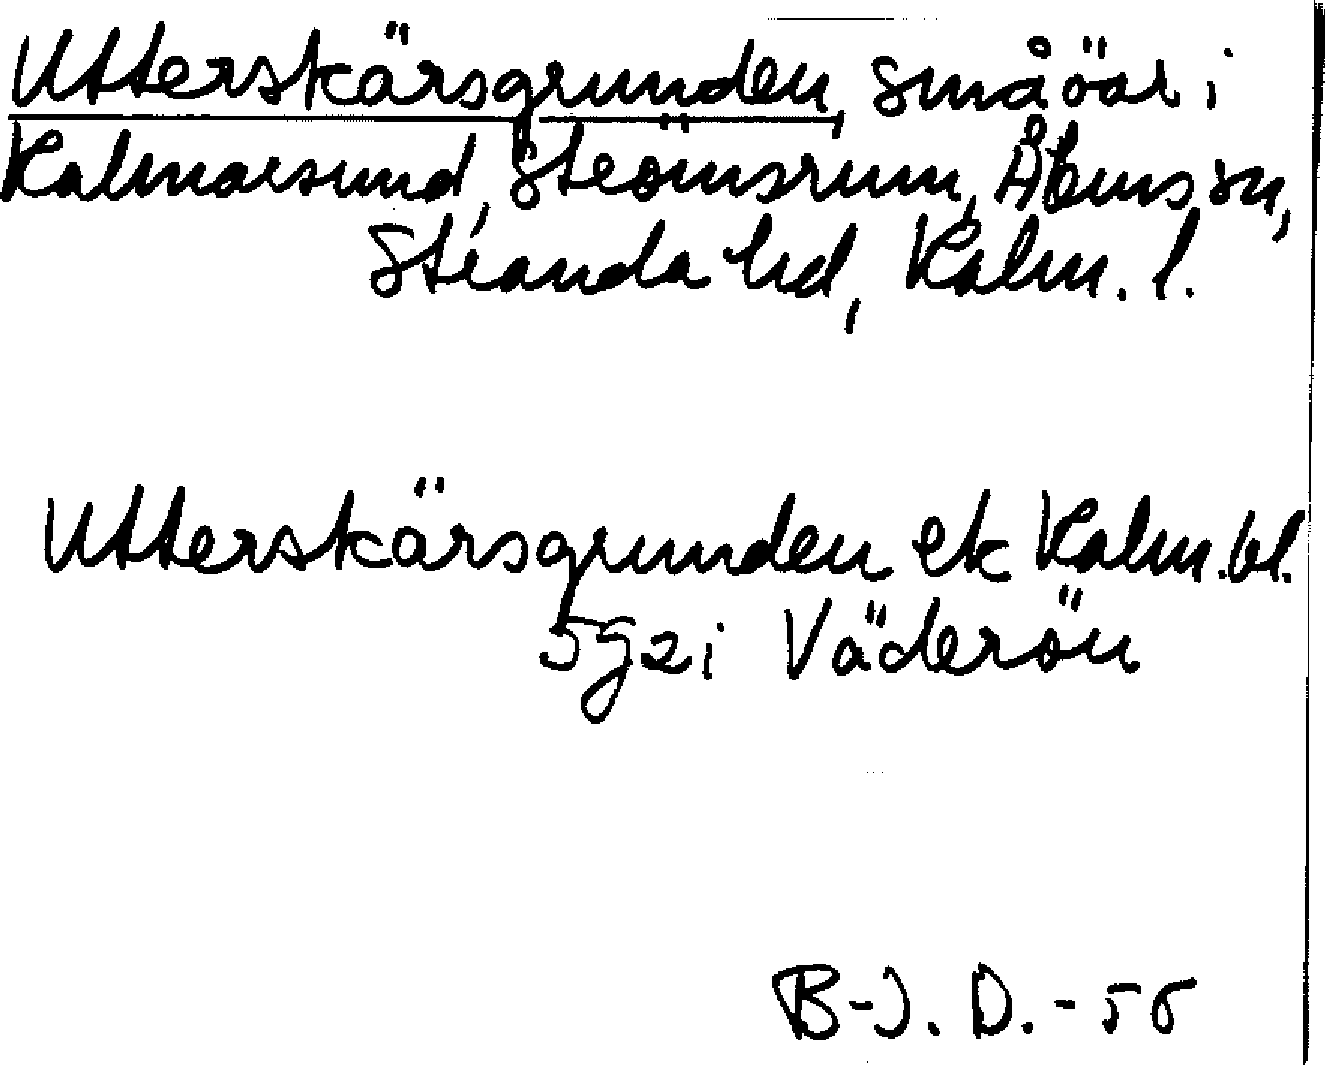 Utterskärsgrunden, småöar i
Kalmarsund, Strömsrum, Åbyns sn,
Stranda hd, Kalm. l.
Utterskärsgrunden ek Kalm. bl.
5g2i Väderön
B-J. D. - 56